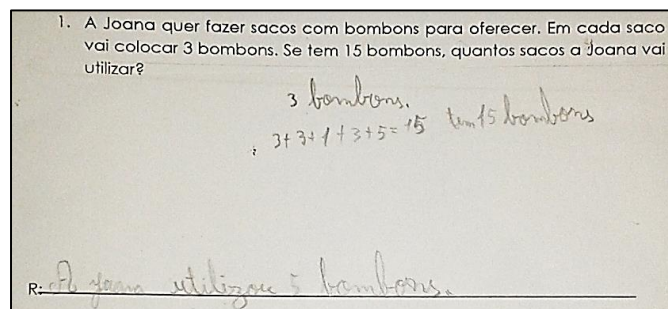 1. A Joana quer fazer sacos com bombons para oferecer. Em cada saco
vai colocar 3 bombons. Se tem 15 bombons, quantos sacos a Joana vai
utilizar?
3 bombons.
3+3+1+3+5=15 tem 15 bombons
R: A Joana utilizou 5 bombons.